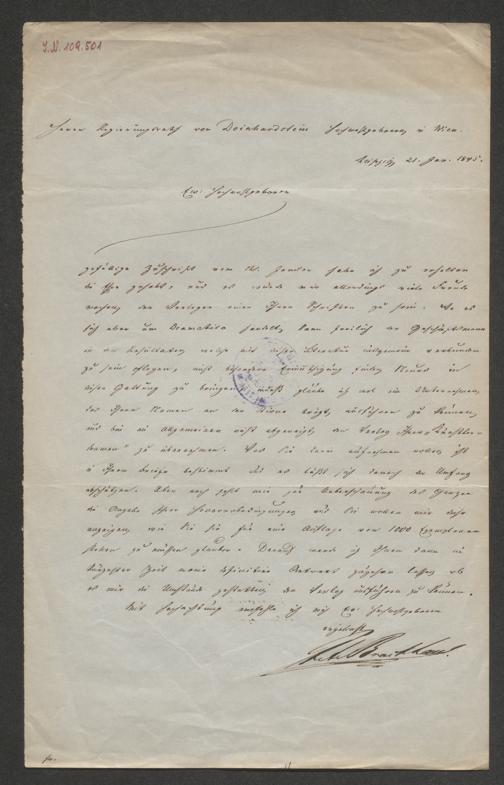 I.N. 109.501
Herrn Regierungsrath von Deinhardstein Hochwohlgeboren in Wien.
Leipzig 21. Jan. 1845.
Ew. Hochwohlgeboren
gefällige Zuschrift vom 12. Januar habe ich zu erhalten
die Ehre gehabt, und es würde mir allerdings viele Freude
machen, der Verleger einer Ihrer Schriften zu sein. Wo es
sich aber um Dramatica handelt, kann freilich der Geschäftsmann
in den Resultaten, welche mit dieser Literatur allgemein verbunden
zu sein pflegen, nicht besondere Ermuthigung finden, Neues in
dieser Gattung zu bringen; indeß glaube ich mit ein Unternehmen,
das Ihren Namen an der Stirne trägt, ausführen zu können,
und bin im Allgemeinen nicht abgeneigt, den Verlag Ihrer "Künstler-
dramen" zu übernehmen. Was Sie darin aufnehmen wollen, ist
in Ihrem Briefe bestimmt und es läßt sich danach der Umfang
abschätzen. Aber noch fehlt mir zur Uebersehung des Ganzen
die Angabe Ihrer Honorarbedingungen, und Sie wollen mir daher
anzeigen, wie Sie sie für eine Auflage von 1000 Exemplaren
stellen zu müssen glauben. Darauf werde ich Ihnen dann in
kürzester Zeit meine definitive Antwort zugehen lassen, ob
es mir die Umstände gestatten, den Verlag ausführen zu können.
Mit Hochachtung empfehle ich mich Ew. Hochwohlgeboren
ergebenst
Brockhaus